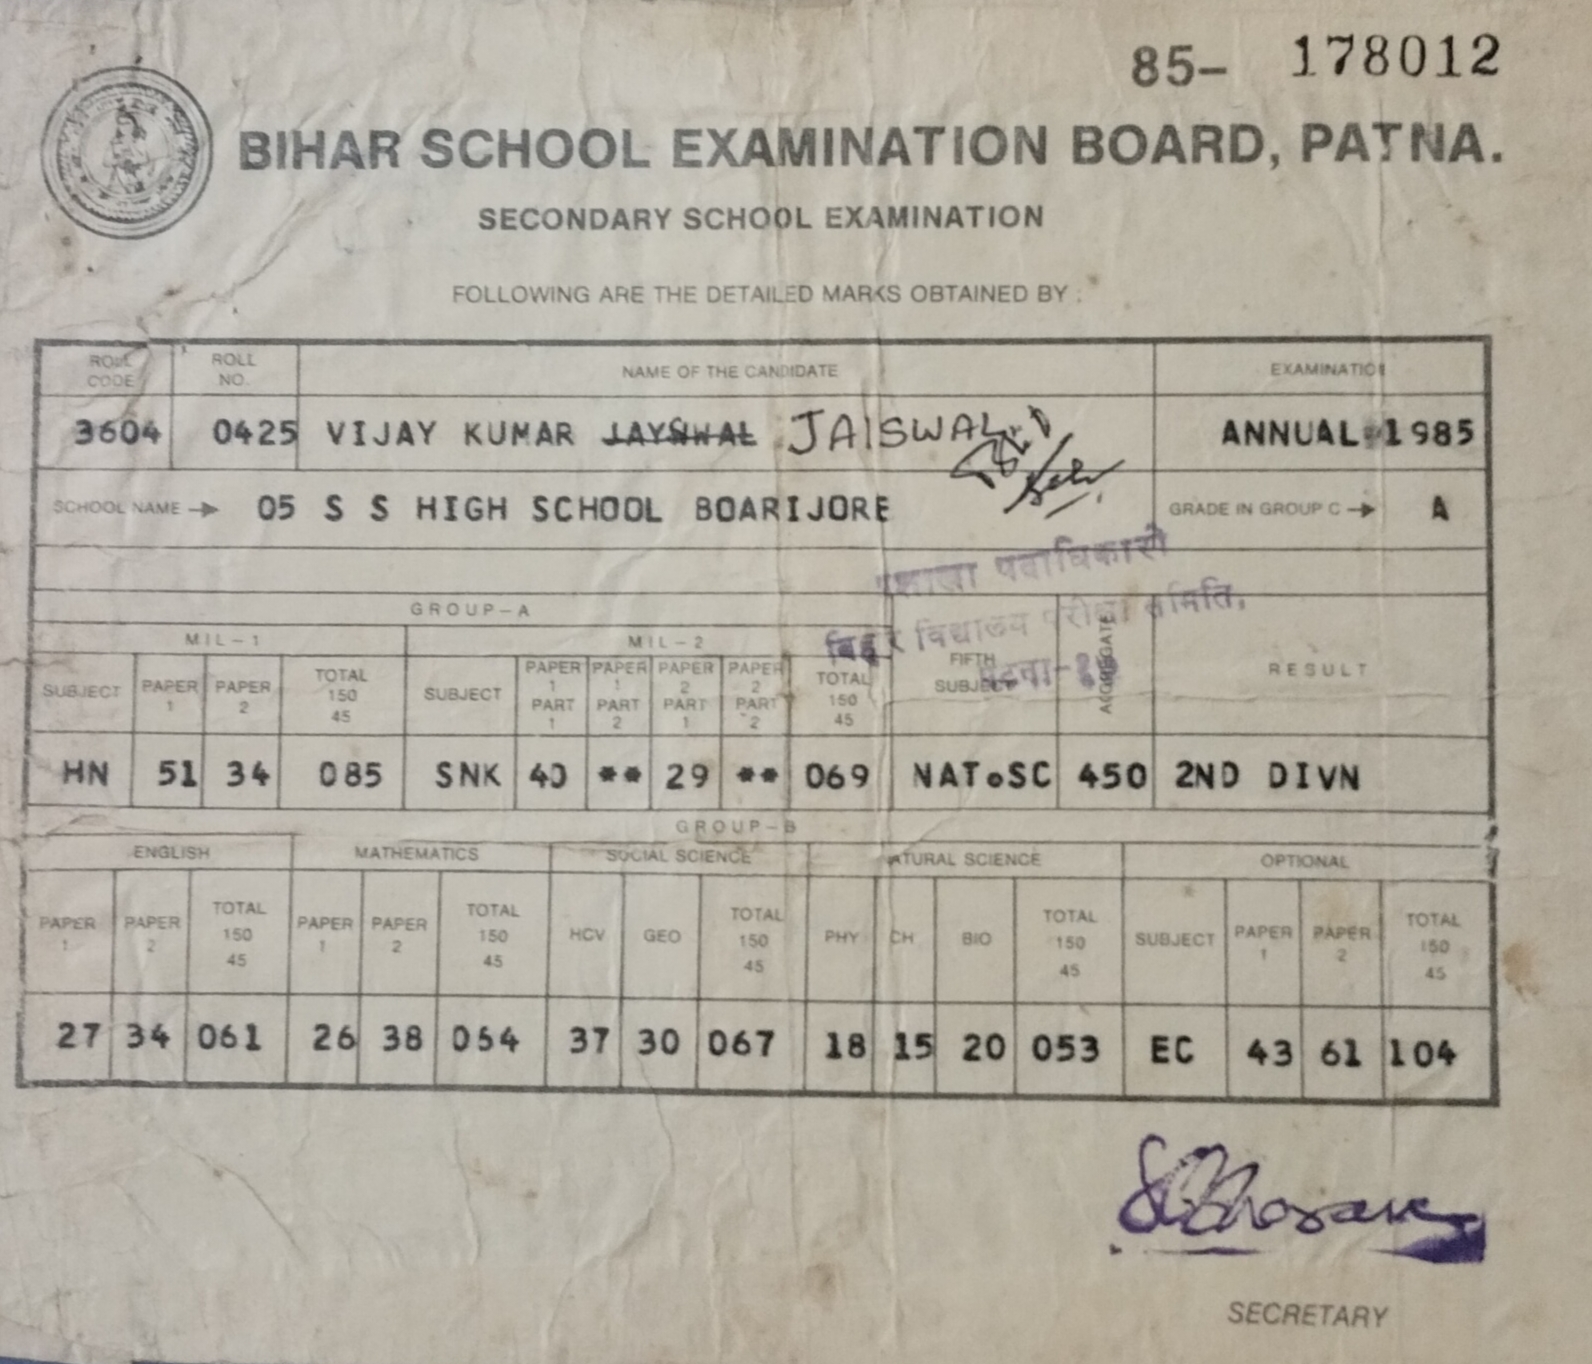 85- 178012
BIHAR SCHOOL EXAMINATION BOARD, PATNA.
SECONDARY SCHOOL EXAMINATION
FOLLOWING ARE THE DETAILED MARKS OBTAINED BY :
ROLL CODE ROLL NO. NAME OF THE CANDIDATE EXAMINATION
3604 0425 VIJAY KUMAR JAYSWAL JAISWAL ANNUAL 1985
SCHOOL NAME → 05 S S HIGH SCHOOL BOARIJORE GRADE IN GROUP C → A
पदाधिकारी
बिहार विद्यालय परीक्षा समिति,
पटना-
GROUP-A
MIL-1 MIL-2
SUBJECT PAPER 1 PAPER 2 TOTAL 150 45 SUBJECT PAPER 1 PART 1 PAPER 1 PART 2 PAPER 2 PART 1 PAPER 2 PART 2 TOTAL 150 45 FIFTH SUBJECT AGGREGATE RESULT
HN 51 34 085 SNK 40 ** 29 ** 069 NAT.SC 450 2ND DIVN
GROUP-B
ENGLISH MATHEMATICS SOCIAL SCIENCE NATURAL SCIENCE OPTIONAL
PAPER 1 PAPER 2 TOTAL 150 45 PAPER 1 PAPER 2 TOTAL 150 45 HCV GEO TOTAL 150 45 PHY CH BIO TOTAL 150 45 SUBJECT PAPER 1 PAPER 2 TOTAL 150 45
27 34 061 26 38 064 37 30 067 18 15 20 053 EC 43 61 104
SECRETARY